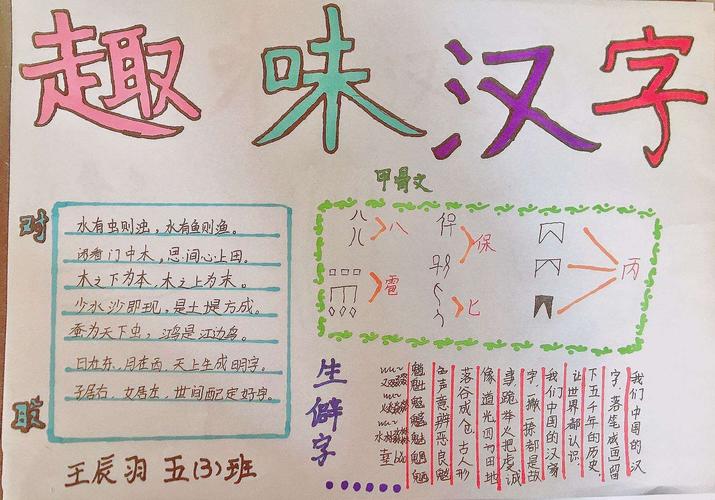 趣味汉字
甲骨文
对
联
水有虫则浊，水有鱼则渔。
闲看门中木，思间心上田。
木之下为本，木之上为末。
少水沙即现，是土堤方成。
蚕为天下虫，鸿是江边鸟。
日在东，月在西，天上生成明字。
子居右，女居左，世间配定好字。
八
保
匕
雹
丙
生僻字
我们中国的汉
字，落笔成画留
下五千年的历史，
让世界都认识，
我们中国的汉家
字，一撇一捺都是故
事，跪举火把虔诚
像，道光四方田地
落谷成仓，古人形
色声意辨恶良魃
魈魁
王辰羽 五(3)班